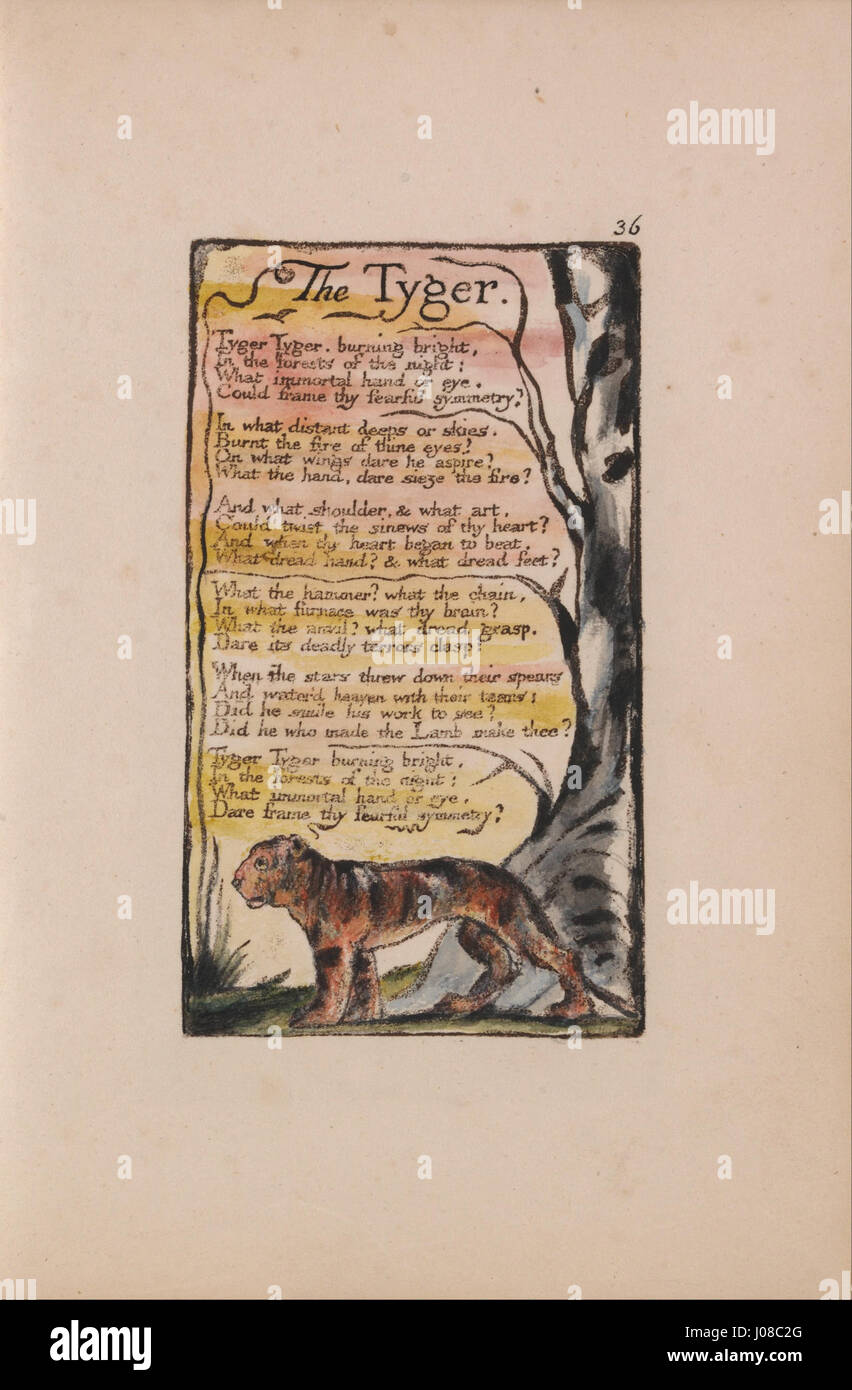 36
The Tyger.
Tyger Tyger. burning bright,
In the forests of the night;
What immortal hand or eye.
Could frame thy fearful symmetry?
In what distant deeps or skies.
Burnt the fire of thine eyes?
On what wings dare he aspire?
What the hand, dare sieze the fire?
And what shoulder, & what art,
Could twist the sinews of thy heart?
And when thy heart began to beat,
What dread hand? & what dread feet?
What the hammer? what the chain,
In what furnace was thy brain?
What the anvil? what dread grasp.
Dare its deadly terrors clasp!
When the stars threw down their spears
And water'd heaven with their tears:
Did he smile his work to see?
Did he who made the Lamb make thee?
Tyger Tyger burning bright,
In the forests of the night:
What immortal hand or eye,
Dare frame thy fearful symmetry?
alamy
alamy
alamy
a
a
a
a
a
a
a
a
alamy
Image ID: J08C2G
www.alamy.com